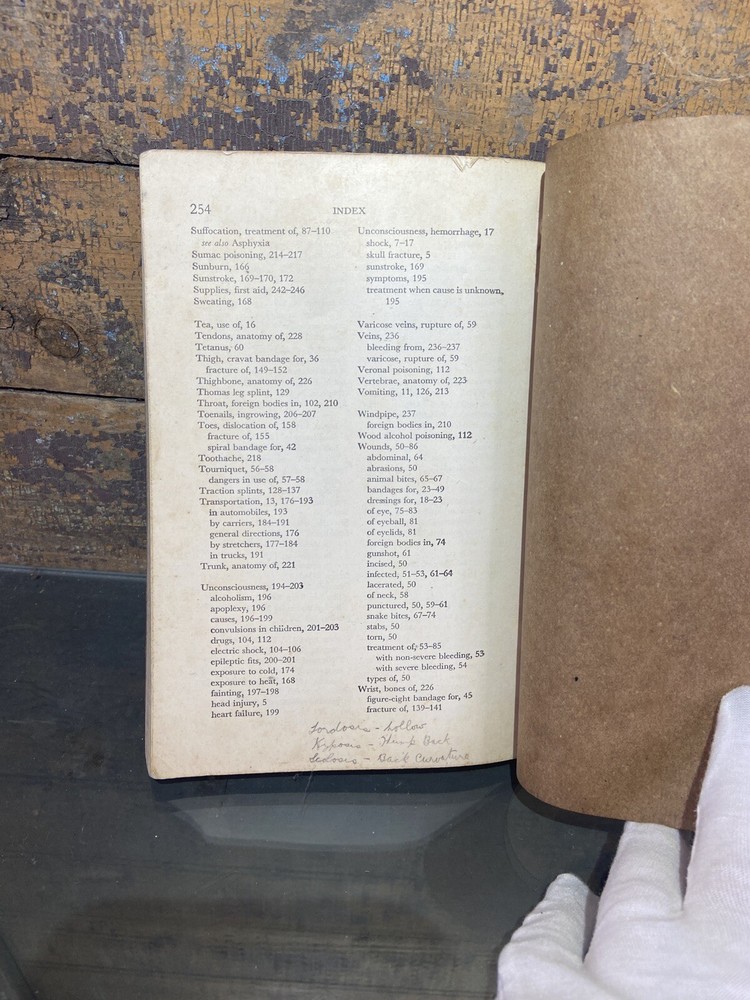 254
INDEX
Suffocation, treatment of, 87–110
see also Asphyxia
Sumac poisoning, 214–217
Sunburn, 166
Sunstroke, 169–170, 172
Supplies, first aid, 242–246
Sweating, 168
Tea, use of, 16
Tendons, anatomy of, 228
Tetanus, 60
Thigh, cravat bandage for, 36
fracture of, 149–152
Thighbone, anatomy of, 226
Thomas leg splint, 129
Throat, foreign bodies in, 102, 210
Toenails, ingrowing, 206–207
Toes, dislocation of, 158
fracture of, 155
spiral bandage for, 42
Toothache, 218
Tourniquet, 56–58
dangers in use of, 57–58
Traction splints, 128–137
Transportation, 13, 176–193
in automobiles, 193
by carriers, 184–191
general directions, 176
by stretchers, 177–184
in trucks, 191
Trunk, anatomy of, 221
Unconsciousness, 194–203
alcoholism, 196
apoplexy, 196
causes, 196–199
convulsions in children, 201–203
drugs, 104, 112
electric shock, 104–106
epileptic fits, 200–201
exposure to cold, 174
exposure to heat, 168
fainting, 197–198
head injury, 5
heart failure, 199
Unconsciousness, hemorrhage, 17
shock, 7–17
skull fracture, 5
sunstroke, 169
symptoms, 195
treatment when cause is unknown,
195
Varicose veins, rupture of, 59
Veins, 236
bleeding from, 236–237
varicose, rupture of, 59
Veronal poisoning, 112
Vertebrae, anatomy of, 223
Vomiting, 11, 126, 213
Windpipe, 237
foreign bodies in, 210
Wood alcohol poisoning, 112
Wounds, 50–86
abdominal, 64
abrasions, 50
animal bites, 65–67
bandages for, 23–49
dressings for, 18–23
of eye, 75–83
of eyeball, 81
of eyelids, 81
foreign bodies in, 74
gunshot, 61
incised, 50
infected, 51–53, 61–64
lacerated, 50
of neck, 58
punctured, 50, 59–61
snake bites, 67–74
stabs, 50
torn, 50
treatment of, 53–85
with non-severe bleeding, 53
with severe bleeding, 54
types of, 50
Wrist, bones of, 226
figure-eight bandage for, 45
fracture of, 139–141
Lordosis - hollow
Kyposis - Hump Back
- Back Curvature